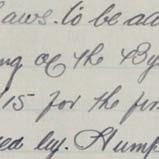 laws. to be ad
ng of the By
15 for the fir
ed by. Hump